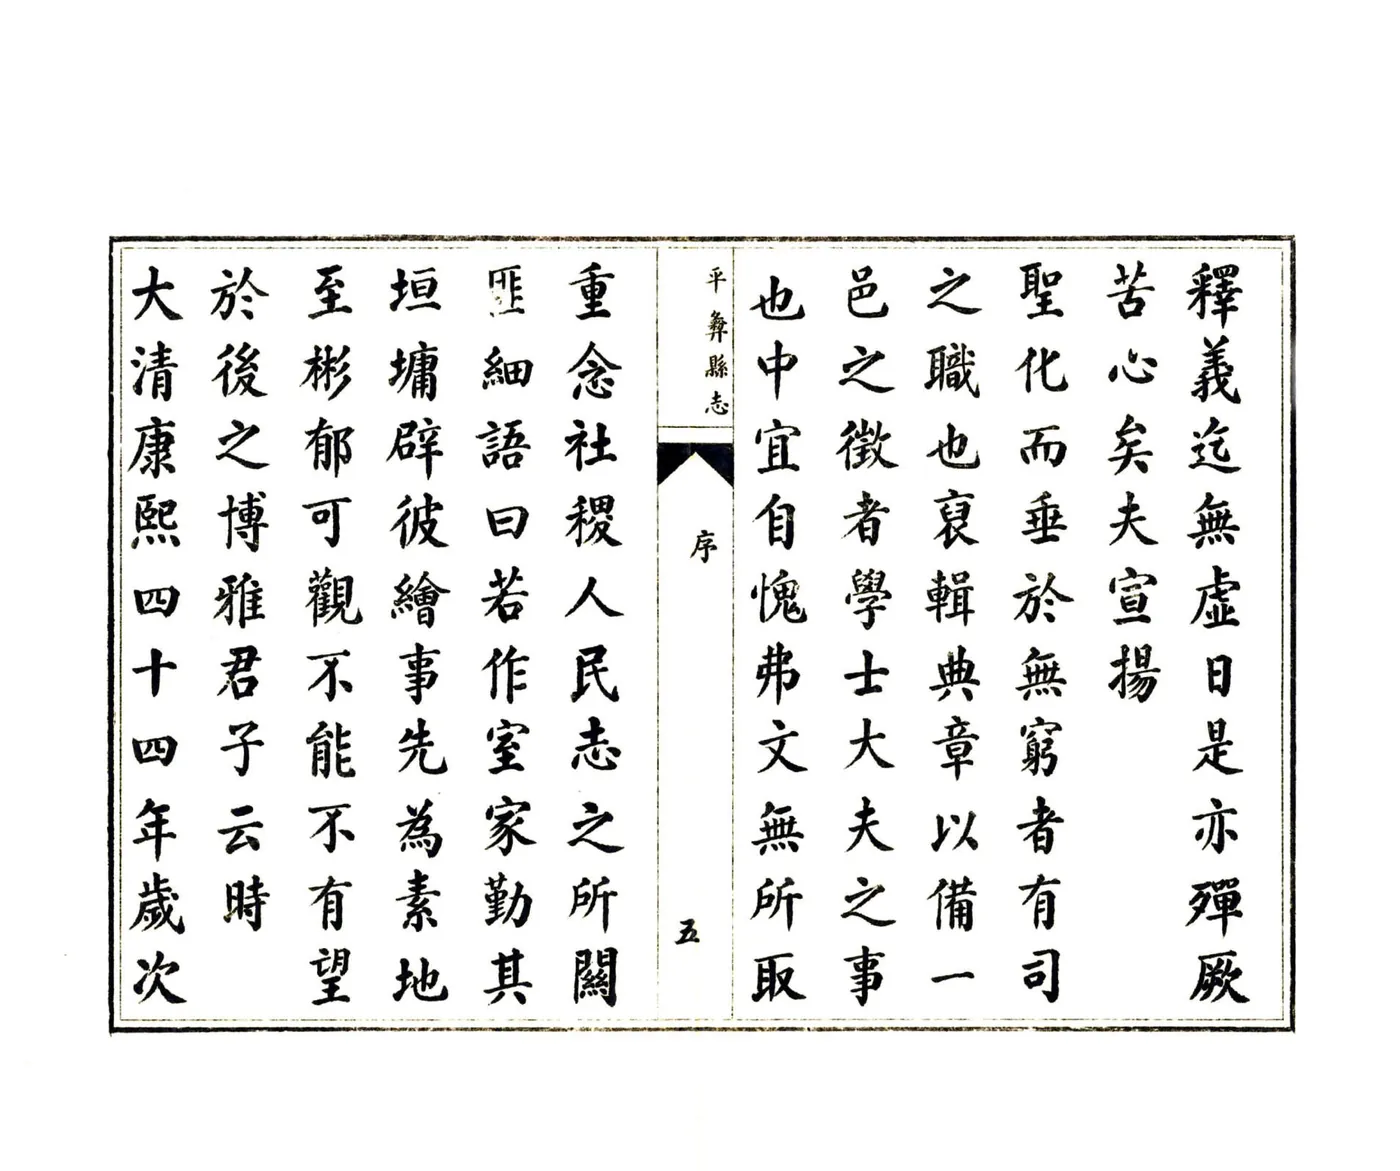 釋義迄無虛日是亦殫厥
苦心矣夫宣揚
聖化而垂於無窮者有司
之職也裒輯典章以備一
邑之徵者學士大夫之事
也中宜自愧弗文無所取
平彝縣志
序
五
重念社稷人民志之所關
匪細語曰若作室家勤其
垣墉辟彼繪事先為素地
至彬郁可觀不能不有望
於後之博雅君子云時
大清康熙四十四年歲次